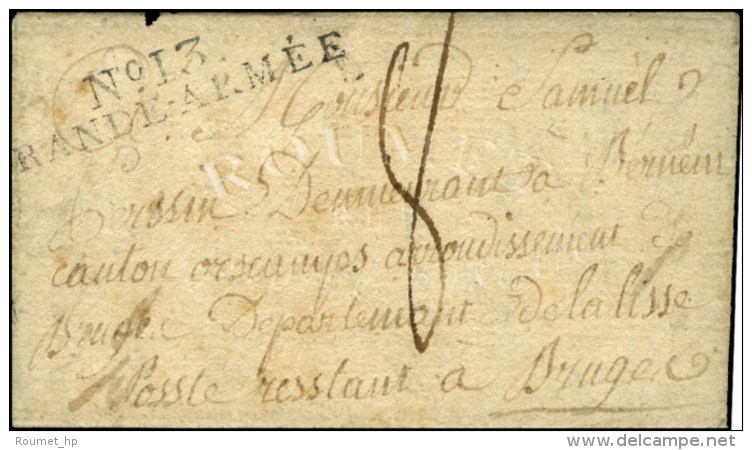 No 13
RANDE-ARMÉE
Monsieur Samuël
Derssin Demieurant à Bernem
canton orscamps arrondissement de
Bruges Departemant de la lisse
Posste resstant à Bruges
8
Roumet_hp
delcampe.net